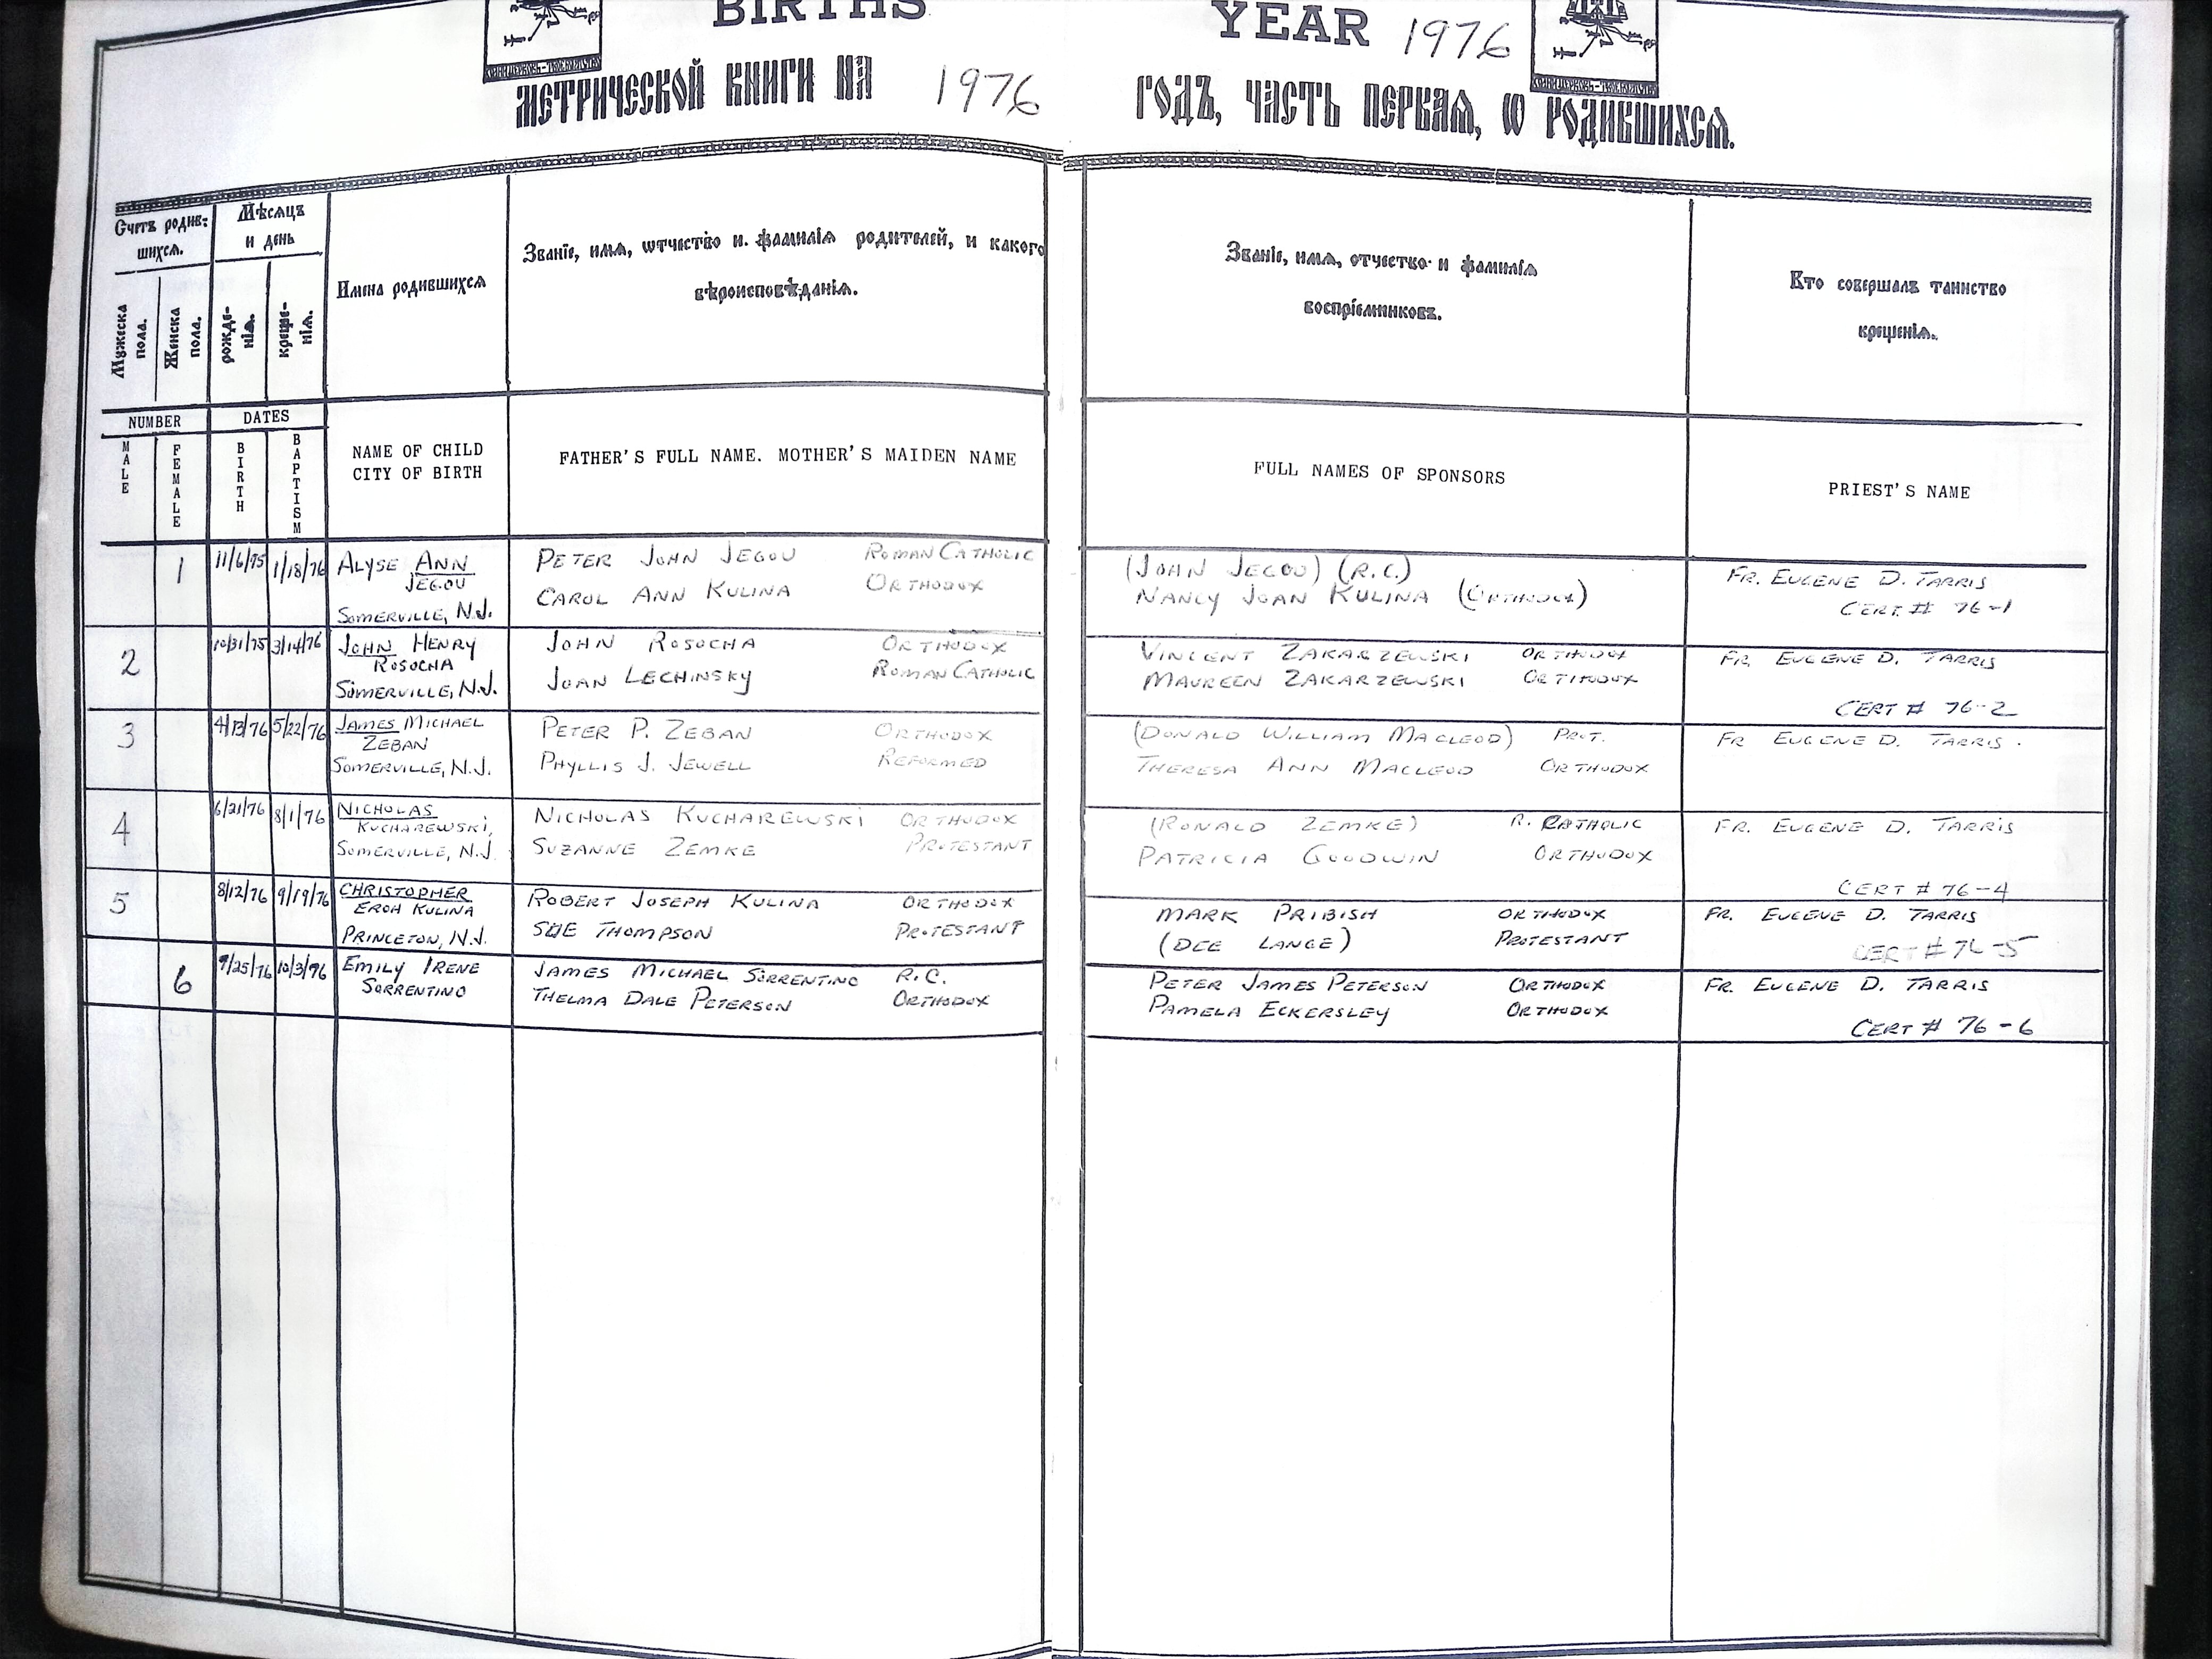 BIRTHS
YEAR 1976
МЕТРИЧЕСКОЙ КНИГИ НА 1976
ГОДЪ, ЧАСТЬ ПЕРВАѦ, Ѡ РОДИВШИХСѦ.
Счетъ родив-
шихсѧ.
Мѣсѧцъ
и день
Мужеска
пола.
Женска
пола.
рожде-
нїѧ.
креще-
нїѧ.
Имена родившихсѧ
Званїе, имѧ, ѡтчество и фамилїѧ родителей, и какого
вѣроисповѣданїѧ.
Званїе, имѧ, отчество и фамилїѧ
воспрїемниковъ.
Кто совершалъ таинство
крещенїѧ.
NUMBER
DATES
MALE
FEMALE
BIRTH
BAPTISM
NAME OF CHILD
CITY OF BIRTH
FATHER'S FULL NAME. MOTHER'S MAIDEN NAME
FULL NAMES OF SPONSORS
PRIEST'S NAME
1 11/6/75 1/18/76 ALYSE ANN
JEGOU
SOMERVILLE, N.J.
PETER JOHN JEGOU ROMAN CATHOLIC
CAROL ANN KULINA ORTHODOX
(JOHN JEGOU) (R.C.)
NANCY JOAN KULINA (ORTHODOX)
FR. EUGENE D. TARRIS
CERT. # 76-1
2 10/31/75 3/14/76 JOHN HENRY
ROSOCHA
SOMERVILLE, N.J.
JOHN ROSOCHA ORTHODOX
JOAN LECHINSKY ROMAN CATHOLIC
VINCENT ZAKARZEWSKI ORTHODOX
MAUREEN ZAKARZEWSKI ORTHODOX
FR. EUGENE D. TARRIS
CERT # 76-2
3 4/13/76 5/22/76 JAMES MICHAEL
ZEBAN
SOMERVILLE, N.J.
PETER P. ZEBAN ORTHODOX
PHYLLIS J. JEWELL REFORMED
(DONALD WILLIAM MACLEOD) PROT.
THERESA ANN MACLEOD ORTHODOX
FR EUGENE D. TARRIS.
4 6/21/76 8/1/76 NICHOLAS
KUCHAREWSKI,
SOMERVILLE, N.J.
NICHOLAS KUCHAREWSKI ORTHODOX
SUZANNE ZEMKE PROTESTANT
(RONALD ZEMKE) R. CATHOLIC
PATRICIA GOODWIN ORTHODOX
FR. EUGENE D. TARRIS
CERT # 76-4
5 8/12/76 9/19/76 CHRISTOPHER
EROH KULINA
PRINCETON, N.J.
ROBERT JOSEPH KULINA ORTHODOX
SUE THOMPSON PROTESTANT
MARK PRIBISH ORTHODOX
(DEE LANGE) PROTESTANT
FR. EUGENE D. TARRIS
CERT # 76-5
6 9/25/76 10/3/76 EMILY IRENE
SORRENTINO
JAMES MICHAEL SORRENTINO R.C.
THELMA DALE PETERSON ORTHODOX
PETER JAMES PETERSON ORTHODOX
PAMELA ECKERSLEY ORTHODOX
FR. EUGENE D. TARRIS
CERT # 76-6